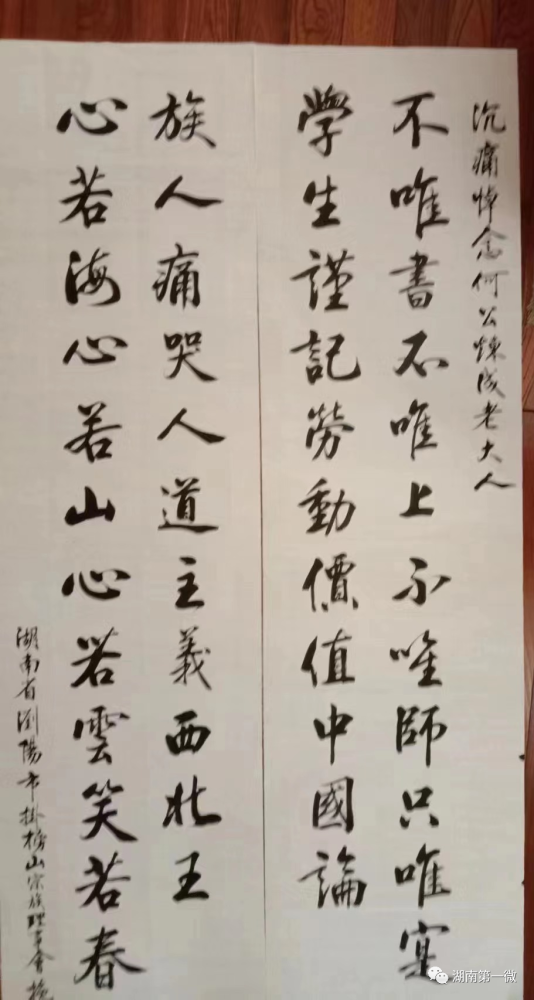 沉痛悼念何公煉成老大人
不唯書不唯上不唯師只唯実
學生謹記勞動價值中國論
族人痛哭人道主義西北王
心若海心若山心若雲笑若春
湖南省瀏陽市掛榜山宗族理事會挽
湖南第一微